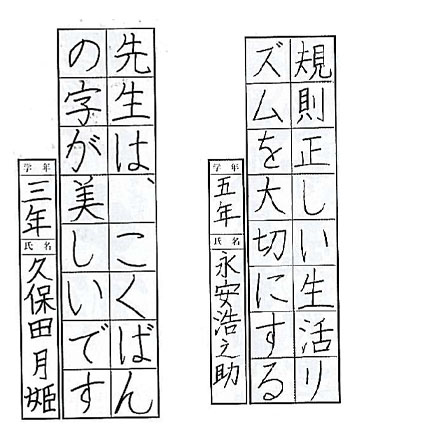 規則正しい生活リ
ズムを大切にする
学年 五年 氏名 永安浩之助
先生は、こくばん
の字が美しいです
学年 三年 氏名 久保田月姫